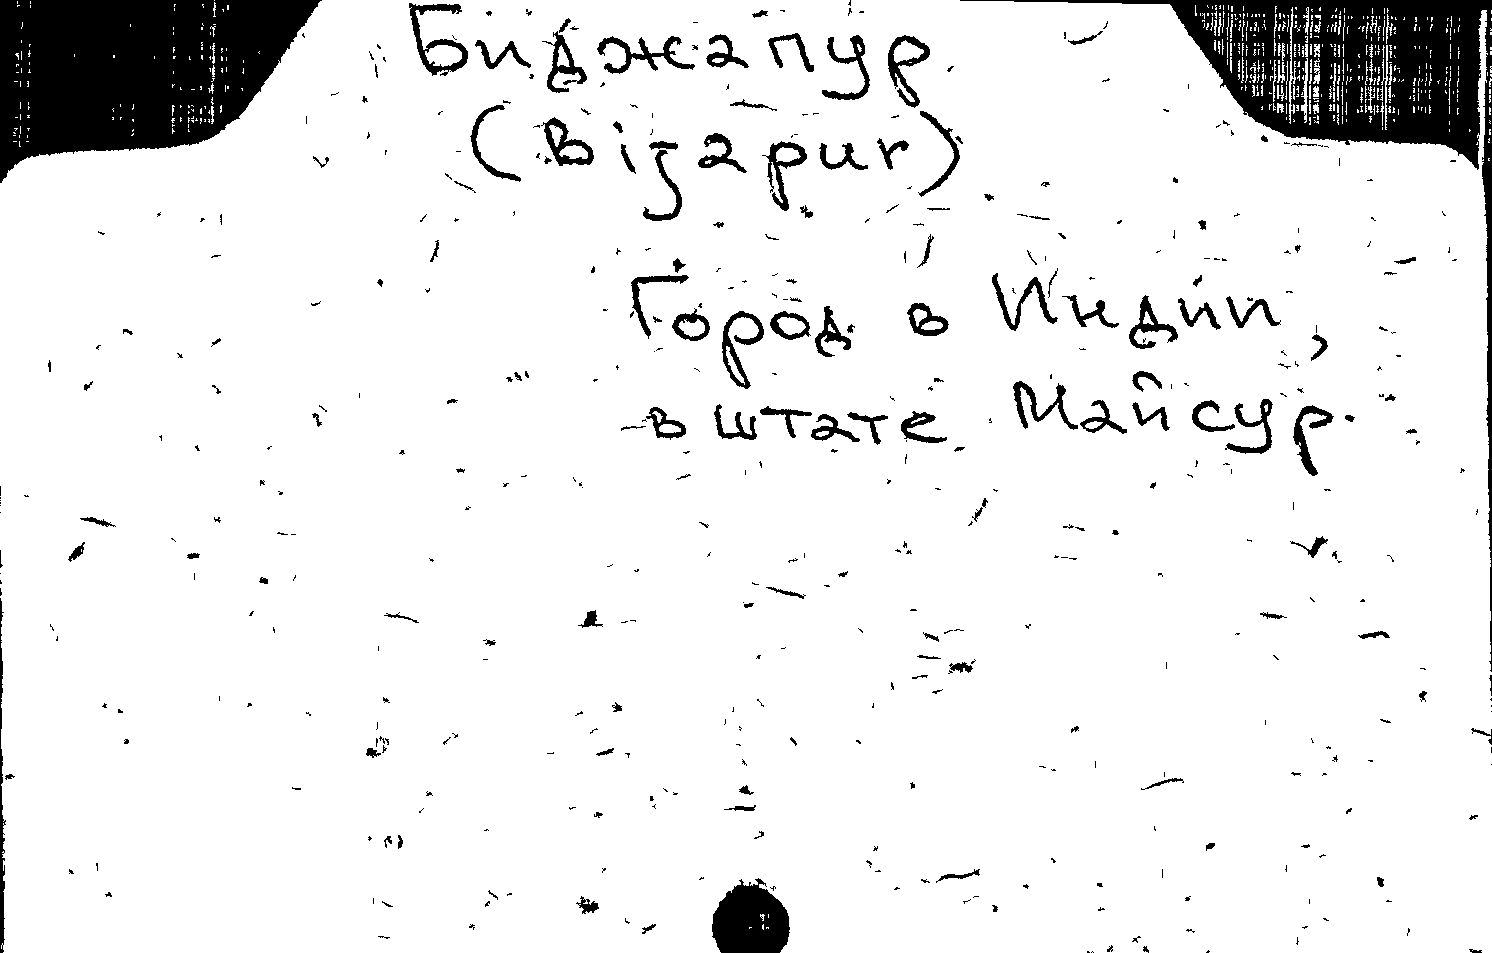 Биджапур
(Bijapur)
Город в Индии,
в штате Майсур.